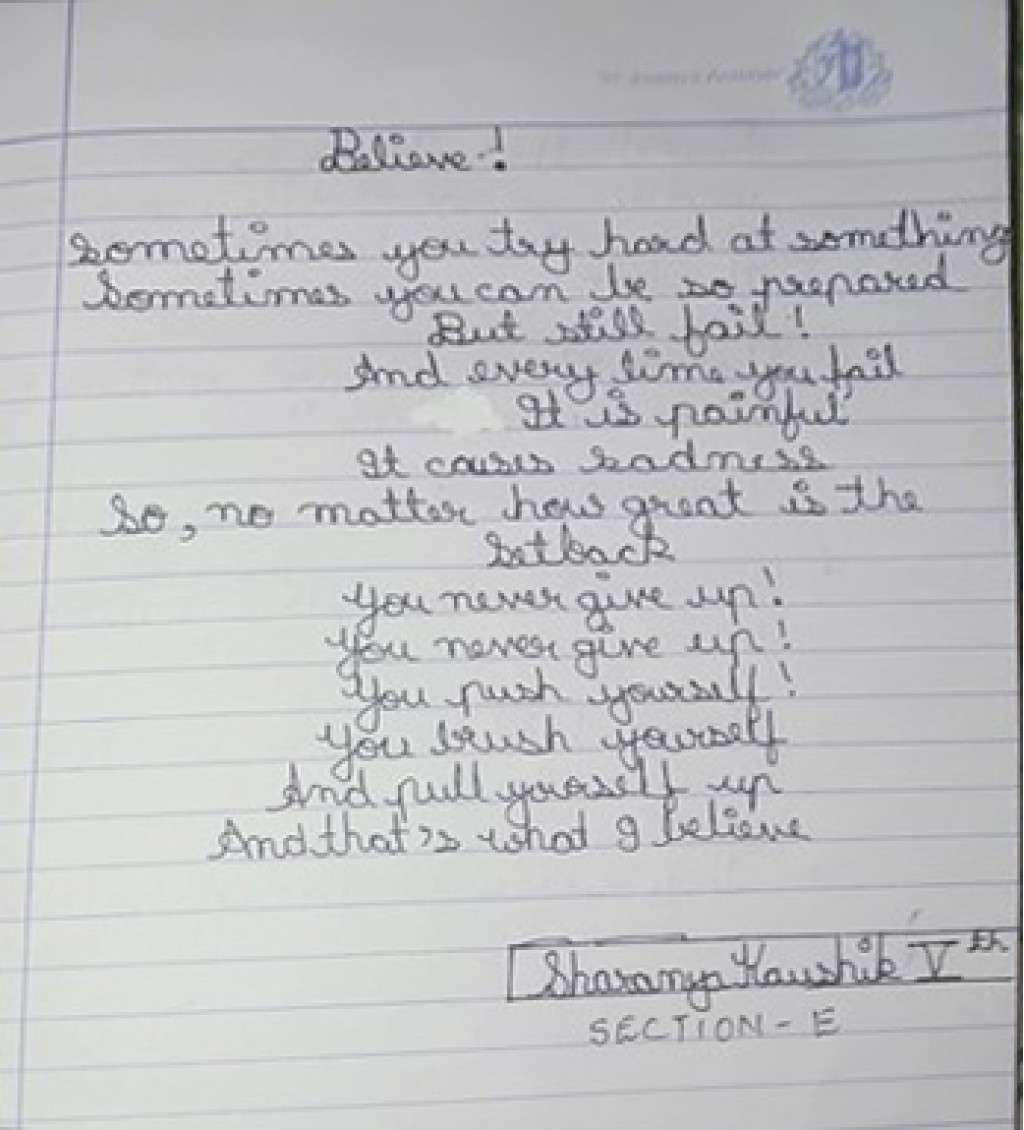 Believe-!
Sometimes you try hard at something
Sometimes you can be so prepared
But still fail!
And every time you fail
It is painful
It causes sadness
So, no matter how great is the
Setback
You never give up!
You never give up!
You push yourself!
You brush yourself
And pull yourself up
And that's what I believe
Sharanya Kaushik Vth
SECTION - E